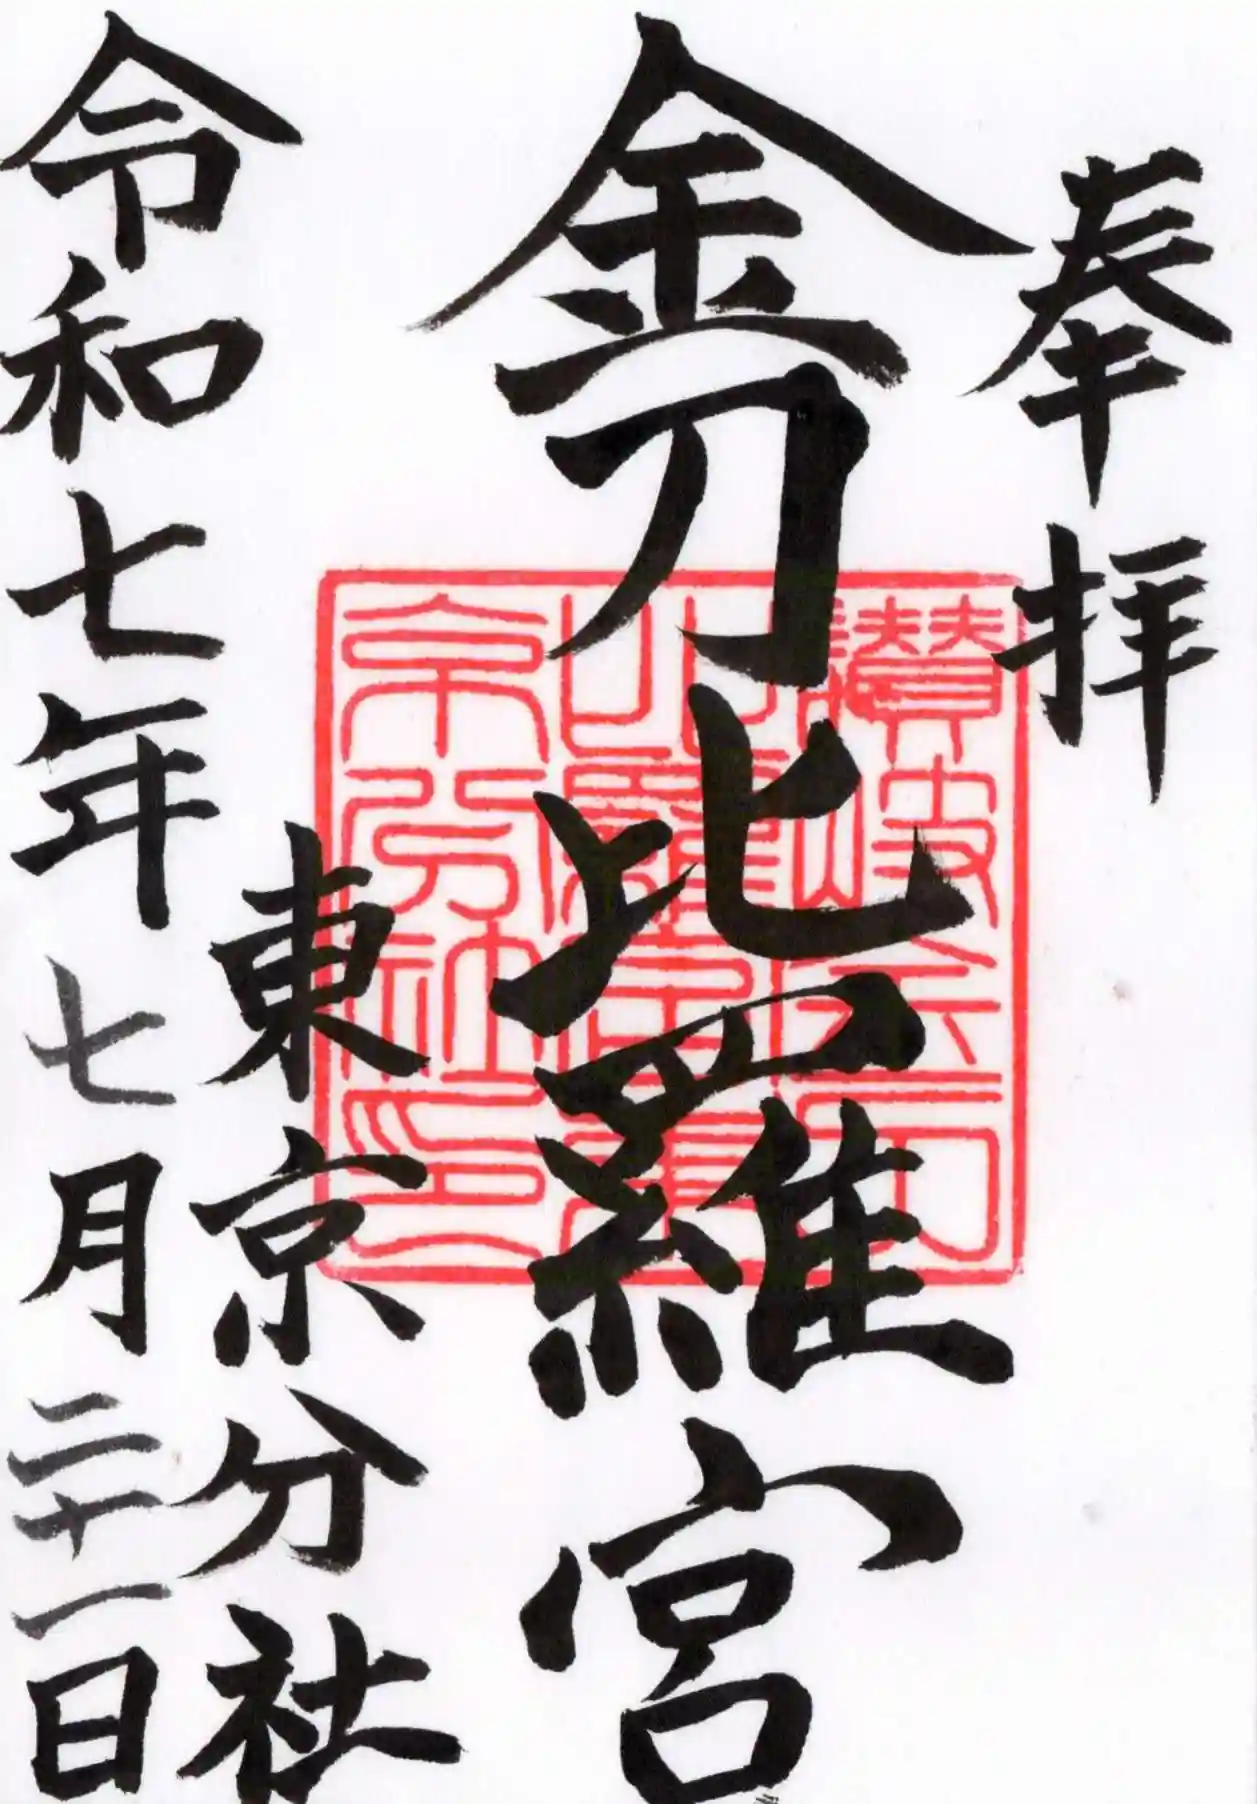 奉拝
金刀比羅宮
東京分社
令和七年七月二十一日
讃岐金刀
比羅宮東
京分社印